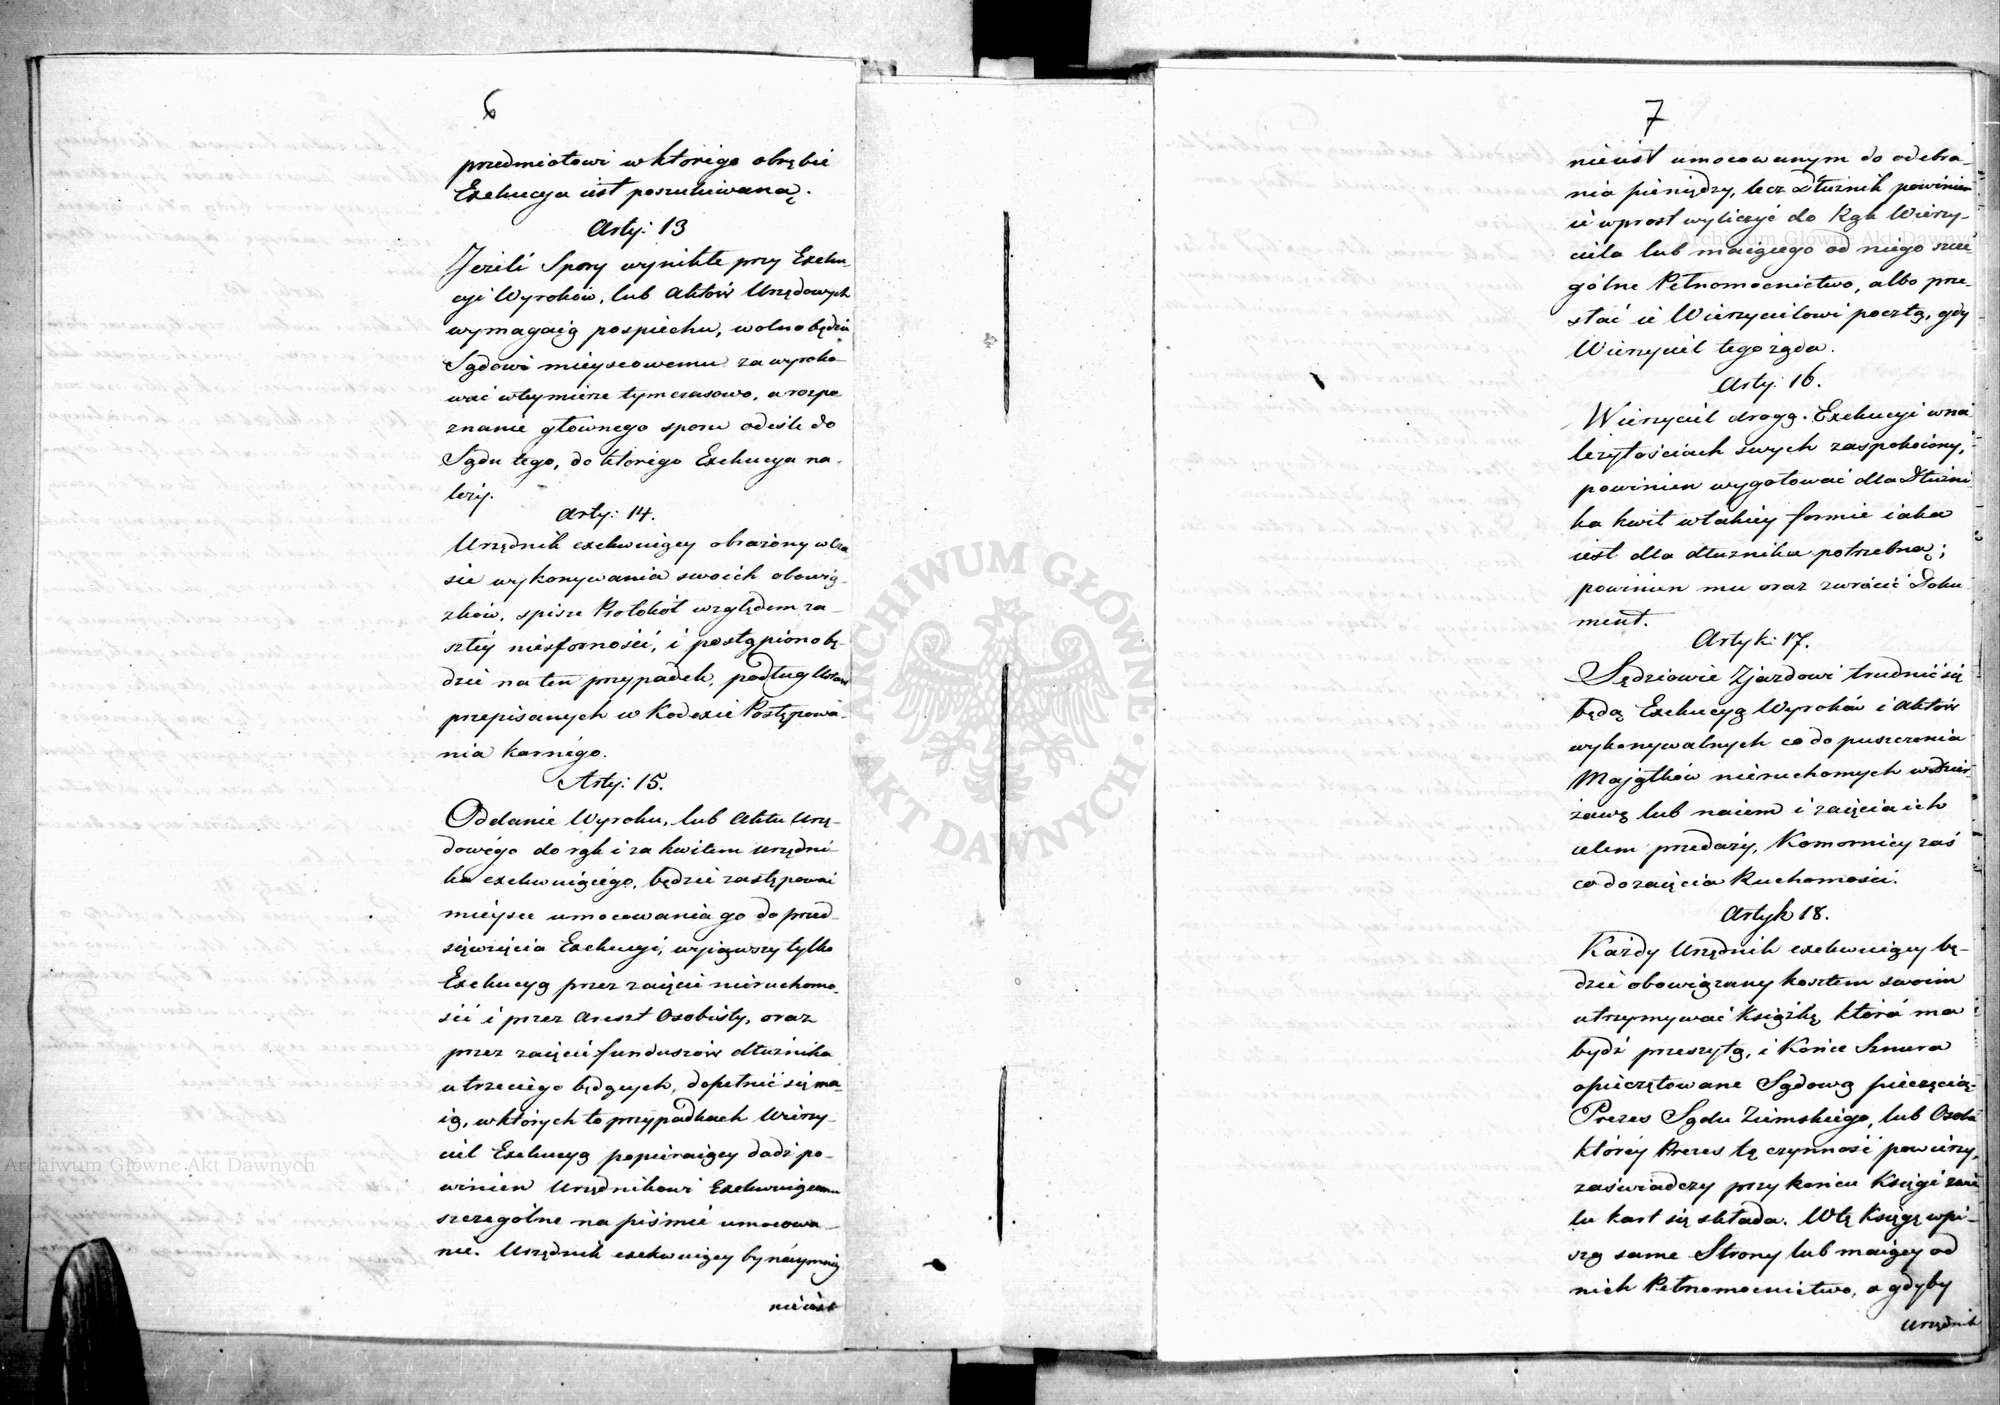 6
przedmiotowi w ktorego obrębie
Exekucya iest poszukiwaną.
Arty: 13
Jeżeli Spory wynikłe przy Exeku-
cyi Wyroków, lub Aktów Urzędowych
wymagaią pospiechu, wolno będzie
Sądowi mieyscowemu zawyroko-
wać w tey mierze tymczasowo, a rozpo
znanie głównego sporu odeśle do
Sądu tego, do ktorego Exekucya na-
leży.
Arty: 14.
Urzędnik exekwuiący obrażony w Cza
sie wykonywania swoich obowią-
zków, spisze Protokół względem za-
szłéy niesforności, i postąpiono bę-
dzie na ten przypadek, podług Ustaw
przepisanych w Kodexie Postępowa-
nia karnégo.
Arty: 15.
Oddanie Wyroku, lub Aktu Urzę-
dowégo do rąk i za kwitem Urzędni-
ka exekwuiącégo, będzie zastępować
mieysce umocowania go do przed-
sięwzięcia Exekucyi, wyiąwszy tylko
Exekucyą przez zaięcie nieruchomo-
ści i przez Areszt Osobisty, oraz
przez zaięcie funduszów dłużnika
u trzeciego będących, dopełnić się ma-
ią, w których to przypadkach Wierzy-
ciel Exekucyą popieraiący dadź po-
winien Urzędnikowi Exekwuiącemu
szczególne na piśmie umocowa-
nie. Urzędnik exekwuiący by náymniéy
nie iest
7
nie iest umocowanym do odebra-
nia pieniędzy, lecz Dłużnik powinien
ie wprost wyliczyć do Rąk Wierzy-
ciela lub maiącego od niego szcze-
gólne Pełnomocnictwo, albo prze-
słać ie Wierzycielowi pocztą, gdy
Wierzyciel tego żąda.
Arty: 16.
Wierzyciel drogą Exekucyi w na
leżytościach swych zaspokoiony,
powinien wygotować dla Dłużni
ka kwit w takiéy formie iaka
iest dla dłużnika potrzebną;
powinien mu oraz zwrócić Doku
ment.
Artyk: 17.
Sędziowie Zjazdowi trudnić się
będą Exekucyą Wyroków i Aktów
wykonywalnych co do puszczenia
Majątków nieruchomych w Dzier-
żawę lub naiem i zaięcia ich
celem przedaży, Komornicy zaś
co do zaięcia Ruchomości.
Artyk 18.
Każdy Urzędnik exekwuiący bę-
dzie obowiązany kosztem swoim
utrzymywać Książkę, która ma
bydź przeszytą, i Końce Sznura
opieczętowane Sądową pieczęcią.
Prezes Sądu Ziemskiego, lub Osoba
któréy Prezes tę czynność powierzy,
zaświadczy przy końcu Księgi z
lu kart się składa. W tę Księgę wpi-
szą same Strony lub maiący od
nich Pełnomocnictwo, a gdyby
Urzędnik
ARCHIWUM GŁÓWNE · AKT DAWNYCH ·
Archiwum Główne Akt Dawnych
Archiwum Główne Akt Dawnych